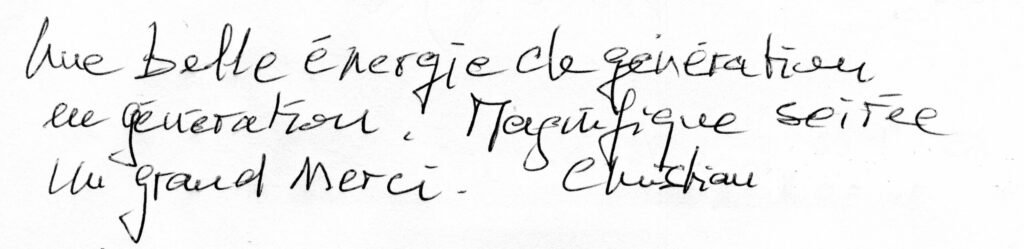 Une belle énergie de génération
en génération. Magnifique soirée
Un grand Merci. Christian